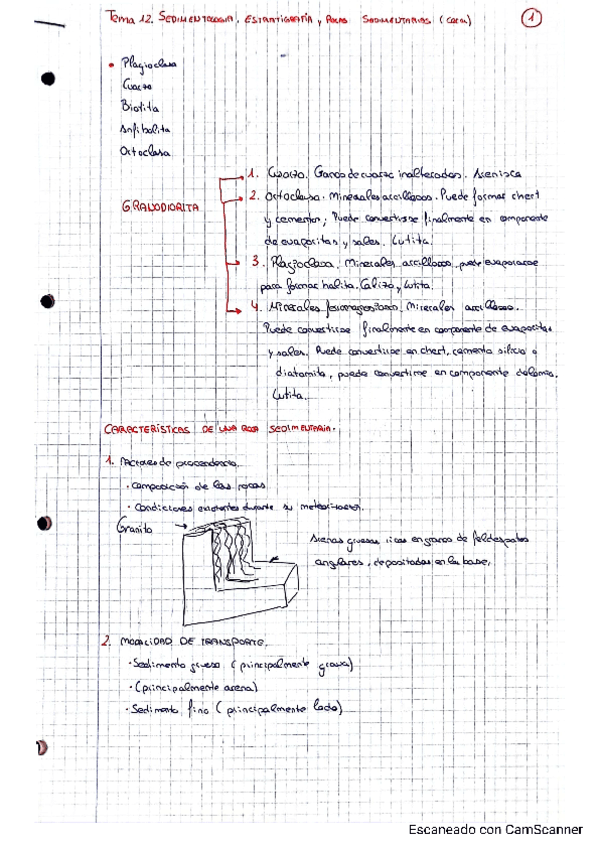 Tema 12. SEDIMENTOLOGIA, ESTRATIGRAFÍA y ROCAS SEDIMENTARIAS (cara) 1
• Plagioclasa
Cuarzo
Biotita
Anfibolita
Octoclasa
1. Cuarzo. Ganos de cuarzo inalterados. Arenisca
GRANODIORITA
2. Octoclasa. Minerales arcillosos. Puede formar chert
y cementar; Puede convertirse finalmente en componente
de evaporitas y sales. Lutita.
3. Plagioclasa. Minerales arcillosos, puede evaporarse
para formar halita. Caliza y lutita.
4. Minerales ferromagnesianos. Minerales arcillosos.
Puede convertirse finalmente en componente de evaporitas
y sales. Puede convertirse en chert, cemento silicio o
diatomita, puede convertirse en componente dolomia.
Lutita.
CARACTERÍSTICAS DE UNA ROCA SEDIMENTARIA.
1. Factores de procedencia.
· Composición de las rocas
· Condiciones existentes durante su meteorización.
Granito
Arenas gruesas ricas en granos de feldespatos
angulares, depositadas en la base.
2. MODALIDAD DE TRANSPORTE.
· Sedimento grueso (principalmente grava)
· (principalmente arena)
· Sedimento fino (principalmente lodo)
Escaneado con CamScanner